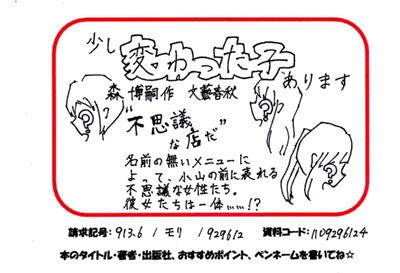 少し変わった子あります
森 博嗣作 文藝春秋
“不思議
な店だ”
名前の無いメニューに
よって、小山の前に表れる
不思議な女性たち。
彼女たちは一体……!?
請求記号: 913.6 / モリ / 929612 資料コード: 1109296124
本のタイトル・著者・出版社、おすすめポイント、ペンネームを書いてね☆